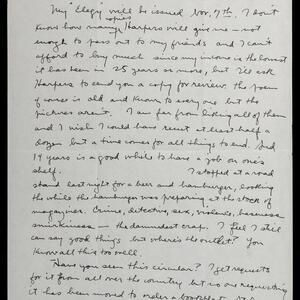 My "Elegy" will be issued Nov. 7th. I don't
copies
know how many Harpers will give me — not
enough to pass out to my friends and I can't
afford to buy much since my income is the lowest
it has been in 25 years or more, but I'll ask
Harpers to send you a copy for review. The poem
of course is old and known to everyone but the
pictures aren't. I am far from liking all of them
and I wish I could have recut at least half a
dozen but a time comes for all things to end. And
19 years is a good while to have a job on one's
shelf. I stopped at a road
stand last night for a beer and hamburger, looking
the while the hamburger was preparing at the stock of
magazines. Crime, detective, sex, violence, baseness
smirkiness — the damnedest crap. I feel I still
can say good things but where's the outlet? You
know all this too well.
Have you seen this circular? I get requests
for it from all over the country but no one requesting
it has been moved to order a booklet.